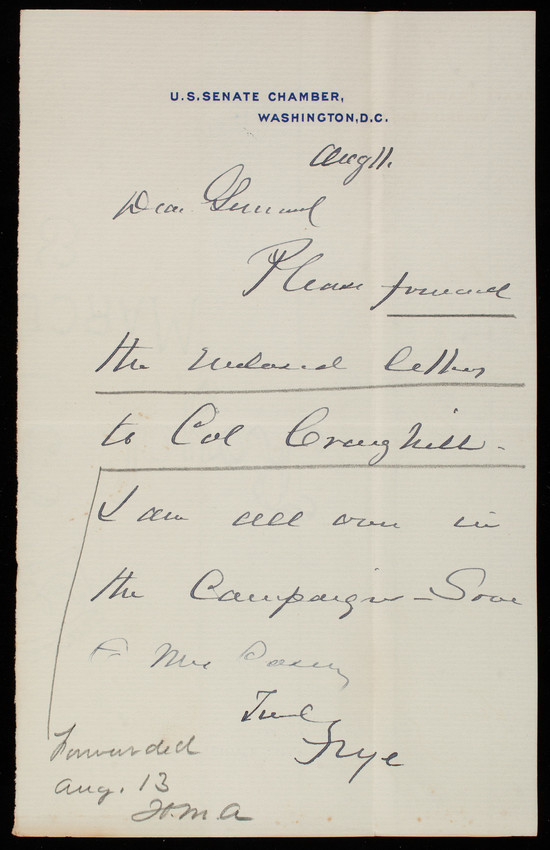 U.S. SENATE CHAMBER,
WASHINGTON, D.C.
Aug 11.
Dear General
Please forward
the enclosed letters
to Col Craighill -
I am all over in
the Campaign - Love
to Mrs Casey
Truly
Frye
Forwarded
Aug. 13
H.M.A